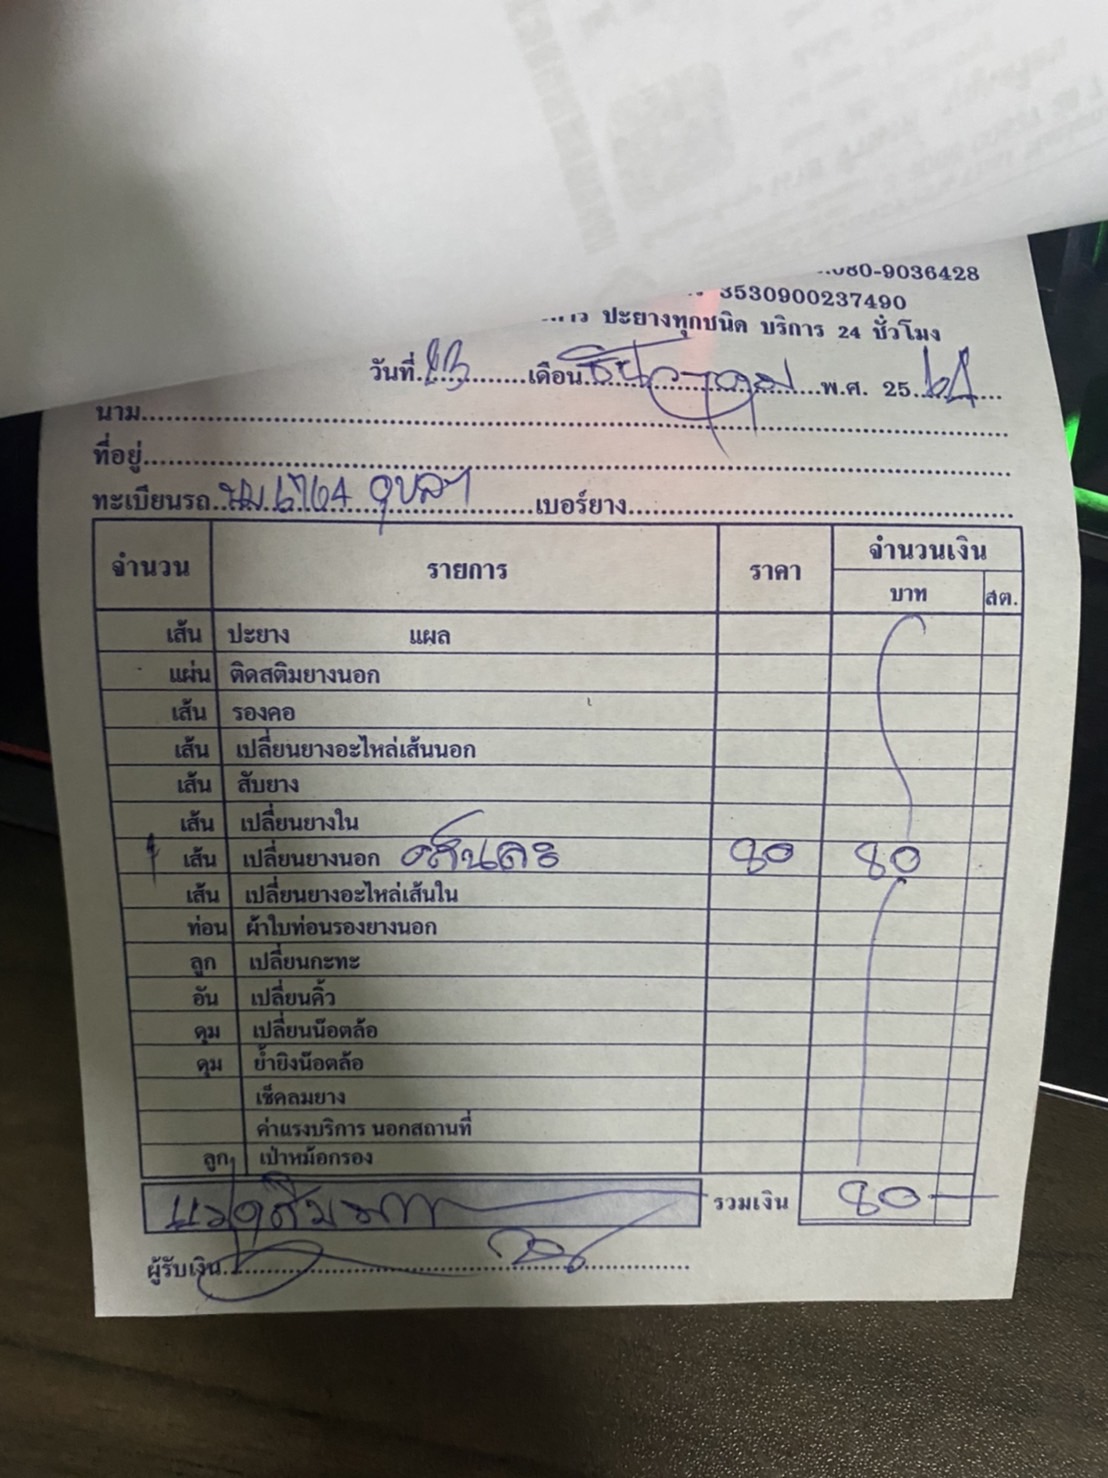 080-9036428
3530900237490
ปะยางทุกชนิด บริการ 24 ชั่วโมง
วันที่ 23 เดือน ธันวาคม พ.ศ. 25
นาม
ที่อยู่
ทะเบียนรถ อุบลฯ เบอร์ยาง
จำนวน รายการ ราคา จำนวนเงิน
บาท สต.
เส้น ปะยาง แผล
แผ่น ติดสติมยางนอก
เส้น รองคอ
เส้น เปลี่ยนยางอะไหล่เส้นนอก
เส้น สับยาง
เส้น เปลี่ยนยางใน
1 เส้น เปลี่ยนยางนอก เส้นละ 80 80
เส้น เปลี่ยนยางอะไหล่เส้นใน
ท่อน ผ้าใบท่อนรองยางนอก
ลูก เปลี่ยนกะทะ
อัน เปลี่ยนคิ้ว
ดุม เปลี่ยนน๊อตล้อ
ดุม ย้ำยิงน๊อตล้อ
เช็คลมยาง
ค่าแรงบริการ นอกสถานที่
ลูก เป่าหม้อกรอง
แปดสิบบาท รวมเงิน 80
ผู้รับเงิน